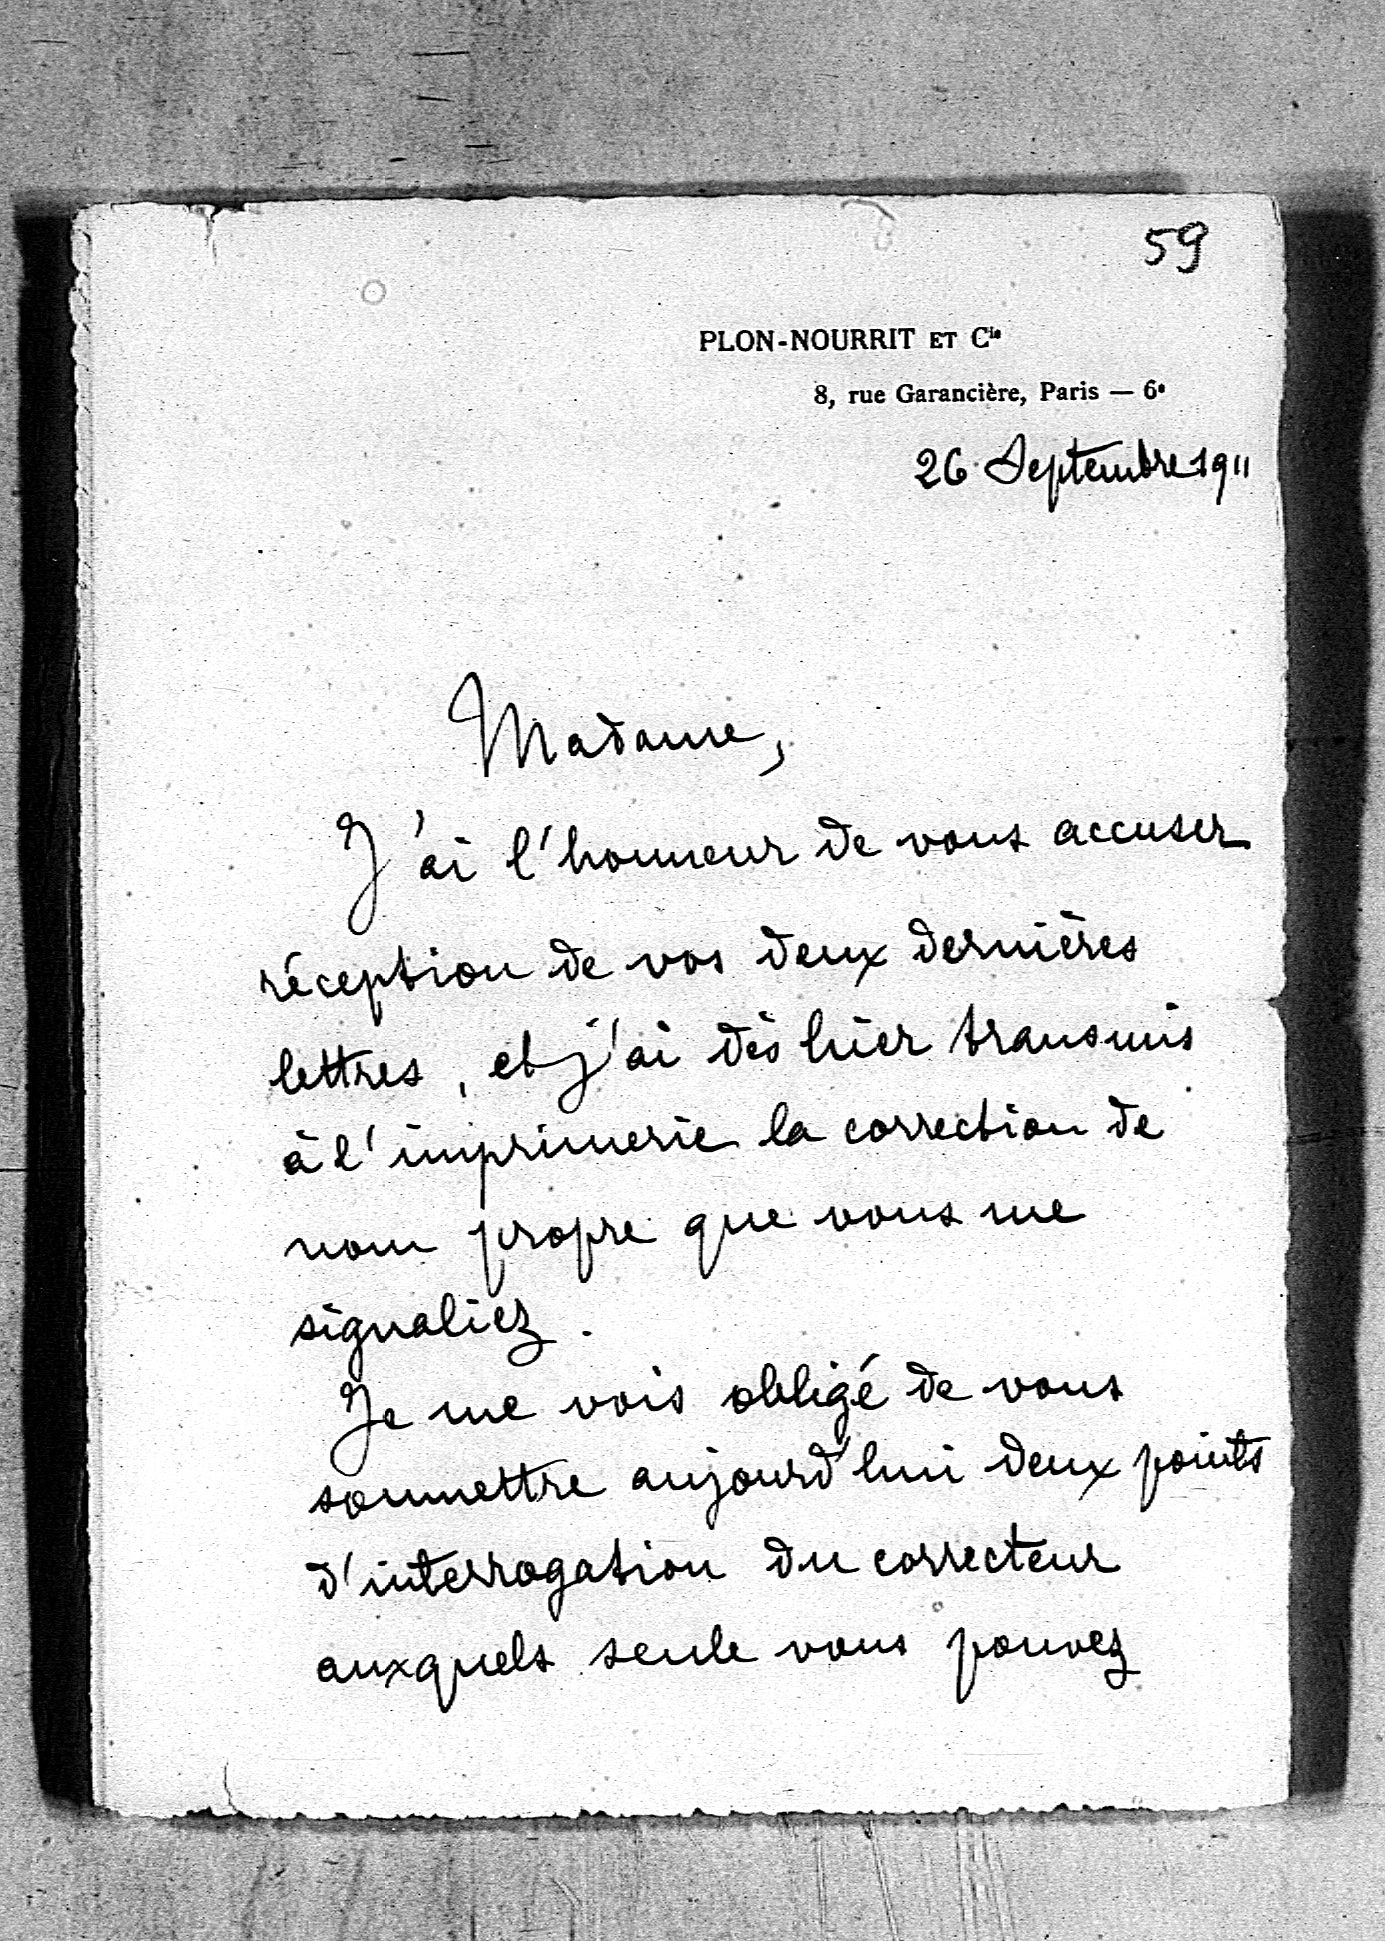 59
PLON-NOURRIT ET Cie
8, rue Garancière, Paris — 6e
26 Septembre 1911
Madame,
J'ai l'honneur de vous accuser
réception de vos deux dernières
lettres, et j'ai dès hier transmis
à l'imprimerie la correction de
nom propre que vous me
signaliez.
Je me vois obligé de vous
soumettre aujourd'hui deux points
d'interrogation du correcteur
auxquels seule vous pouvez